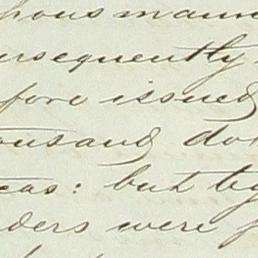 ious mann
rsequently
fore issued
ousand do
eas: but by
ders were f